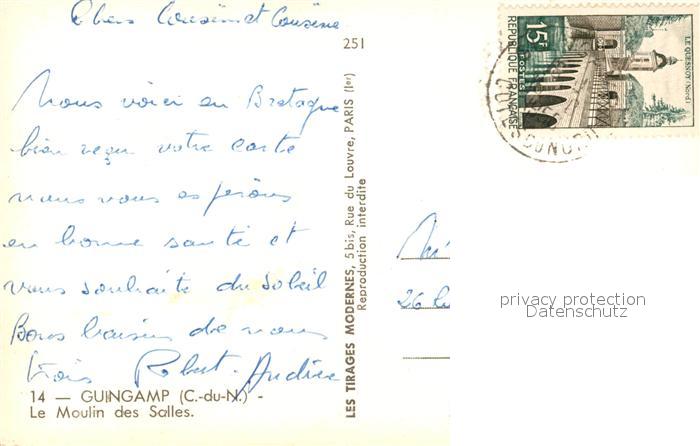 Chers Cousin et Cousine
Nous voici en Bretagne
bien reçu votre carte
nous vous espérons
en bonne santé et
vous souhaite du soleil
Bons baisers de nous
trois Robert. Andrée
14 — GUINGAMP (C.-du-N.) -
Le Moulin des Salles.
251
LES TIRAGES MODERNES, 5 bis, Rue du Louvre, PARIS (Ier)
Reproduction interdite
15F
POSTES
RÉPUBLIQUE FRANÇAISE
LE QUESNOY (Nord)
26
privacy protection
Datenschutz